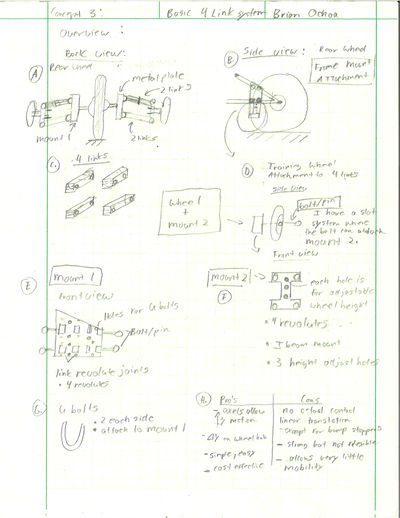 Concept 3: Basic 4 Link system Brian Ochoa
Overview :
Back view:
A Rear wheel
metal plate
2 links
mount 1
2 links
B Side view: Rear wheel
Frame Mount Attachment
C. 4 links
D Training Wheel
Attachment to 4 links
side view
bolt/pin
Wheel
+
mount 2
I have a slot
system where
the bolt can attach
mount 2.
Front view
E Mount 1
Front view
Holes for U bolts
Bolt/pin
link revolute joints
• 4 revolutes
F Mount 2
each hole is
for adjustable
wheel height
• 4 revolutes
• I beam mount
• 3 height adjust holes
G U bolts
• 2 each side
• attach to mount 1
H. Pro's
allow
motion
on wheel hub
- simple, easy
- cost effective
Cons
no actual control
linear translation
- except for bump stoppers
- strong but not flexible
- allows very little
mobility